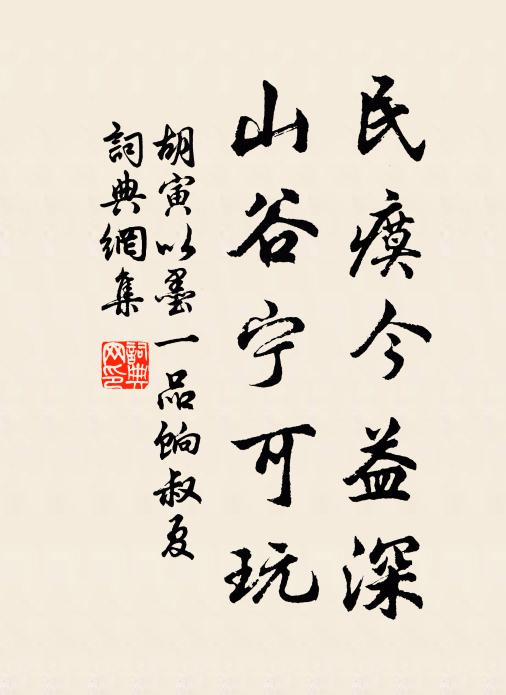 民瘼今益深
山谷宁可玩
胡寅以墨一品餉叔夏
詞典網集
詞典网印